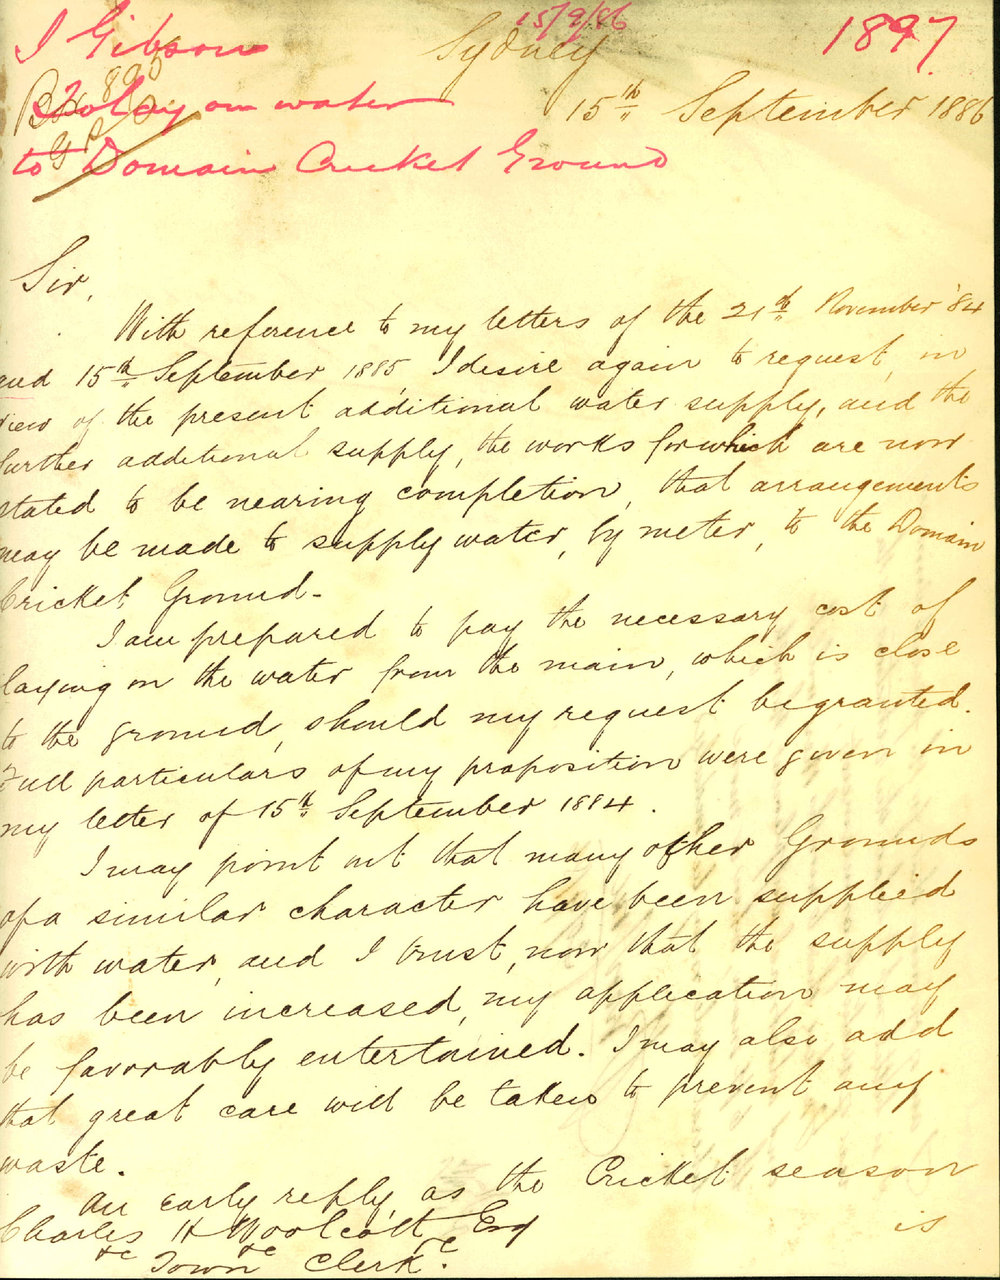 15/9/86
J Gibson
1897
Sydney
to lay on water
15th September 1886
to Domain Cricket Ground
Sir,
With reference to my letters of the 21st November '84
and 15th September 1885, I desire again to request, in
view of the present additional water supply, and the
further additional supply, the works for which are now
stated to be nearing completion, that arrangements
may be made to supply water, by meter, to the Domain
Cricket Ground-
I am prepared to pay the necessary cost of
laying on the water from the main, which is close
to the ground, should my request be granted.
Full particulars of my proposition were given in
my letter of 15th September 1884.
I may point out that many other Grounds
of a similar character have been supplied
with water, and I trust, now that the supply
has been increased, my application may
be favorably entertained. I may also add
that great care will be taken to prevent any
waste.
An early reply, as the Cricket season
is
Charles H Woolcott Esq
&c Town &c Clerk &c.